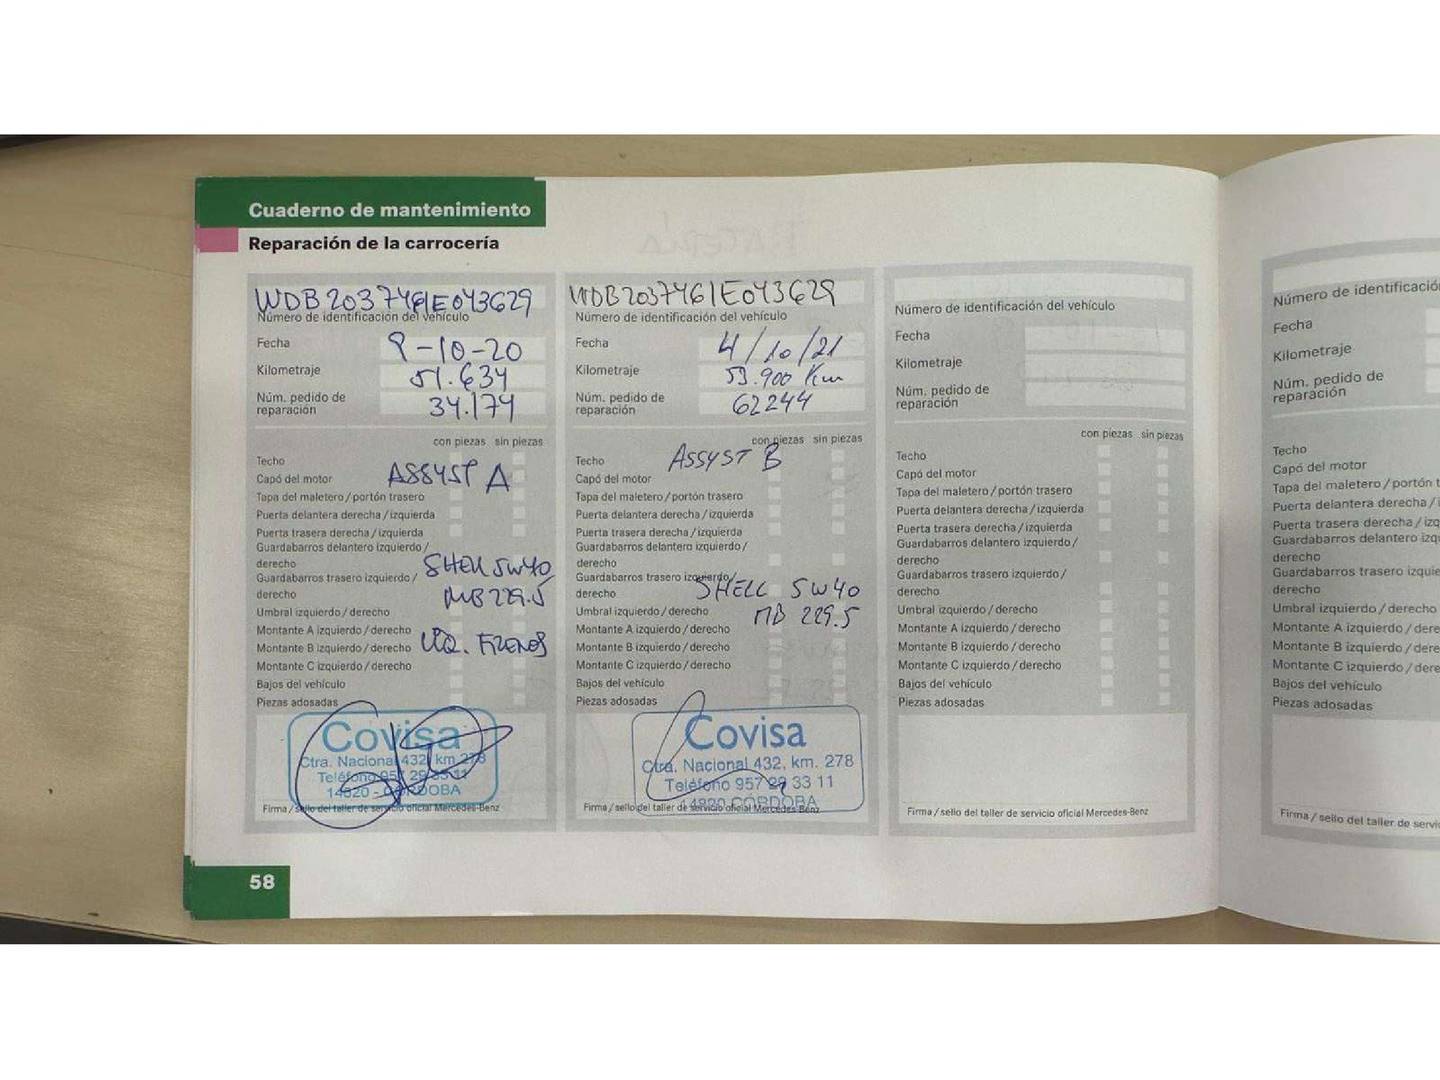 Cuaderno de mantenimiento
Reparación de la carrocería
WDB2037461E043629
Número de identificación del vehículo
Fecha 9-10-20
Kilometraje 51.634
Núm. pedido de
reparación 34.174
con piezas sin piezas
Techo
Capó del motor ASSYST A
Tapa del maletero / portón trasero
Puerta delantera derecha / izquierda
Puerta trasera derecha / izquierda
Guardabarros delantero izquierdo /
derecho SHELL 5W40
Guardabarros trasero izquierdo /
derecho MB 229.5
Umbral izquierdo / derecho
Montante A izquierdo / derecho
Montante B izquierdo / derecho LIQ. FRENOS
Montante C izquierdo / derecho
Bajos del vehículo
Piezas adosadas
Covisa
Ctra. Nacional 432, km. 278
Teléfono 957 29 33 11
14820 - CÓRDOBA
Firma / sello del taller de servicio oficial Mercedes-Benz
WDB2037461E043629
Número de identificación del vehículo
Fecha 4/10/21
Kilometraje 53.900 Km
Núm. pedido de
reparación 62244
con piezas sin piezas
Techo ASSYST B
Capó del motor
Tapa del maletero / portón trasero
Puerta delantera derecha / izquierda
Puerta trasera derecha / izquierda
Guardabarros delantero izquierdo /
derecho
Guardabarros trasero izquierdo /
derecho SHELL 5W40
Umbral izquierdo / derecho MB 229.5
Montante A izquierdo / derecho
Montante B izquierdo / derecho
Montante C izquierdo / derecho
Bajos del vehículo
Piezas adosadas
Covisa
Ctra. Nacional 432, km. 278
Teléfono 957 29 33 11
14820 CÓRDOBA
Firma / sello del taller de servicio oficial Mercedes-Benz
Número de identificación del vehículo
Fecha
Kilometraje
Núm. pedido de
reparación
con piezas sin piezas
Techo
Capó del motor
Tapa del maletero / portón trasero
Puerta delantera derecha / izquierda
Puerta trasera derecha / izquierda
Guardabarros delantero izquierdo /
derecho
Guardabarros trasero izquierdo /
derecho
Umbral izquierdo / derecho
Montante A izquierdo / derecho
Montante B izquierdo / derecho
Montante C izquierdo / derecho
Bajos del vehículo
Piezas adosadas
Firma / sello del taller de servicio oficial Mercedes-Benz
58
Número de identificació
Fecha
Kilometraje
Núm. pedido de
reparación
Techo
Capó del motor
Tapa del maletero / portón t
Puerta delantera derecha / i
Puerta trasera derecha / izq
Guardabarros delantero izq
derecho
Guardabarros trasero izquie
derecho
Umbral izquierdo / derecho
Montante A izquierdo / dere
Montante B izquierdo / dere
Montante C izquierdo / dere
Bajos del vehículo
Piezas adosadas
Firma / sello del taller de servic